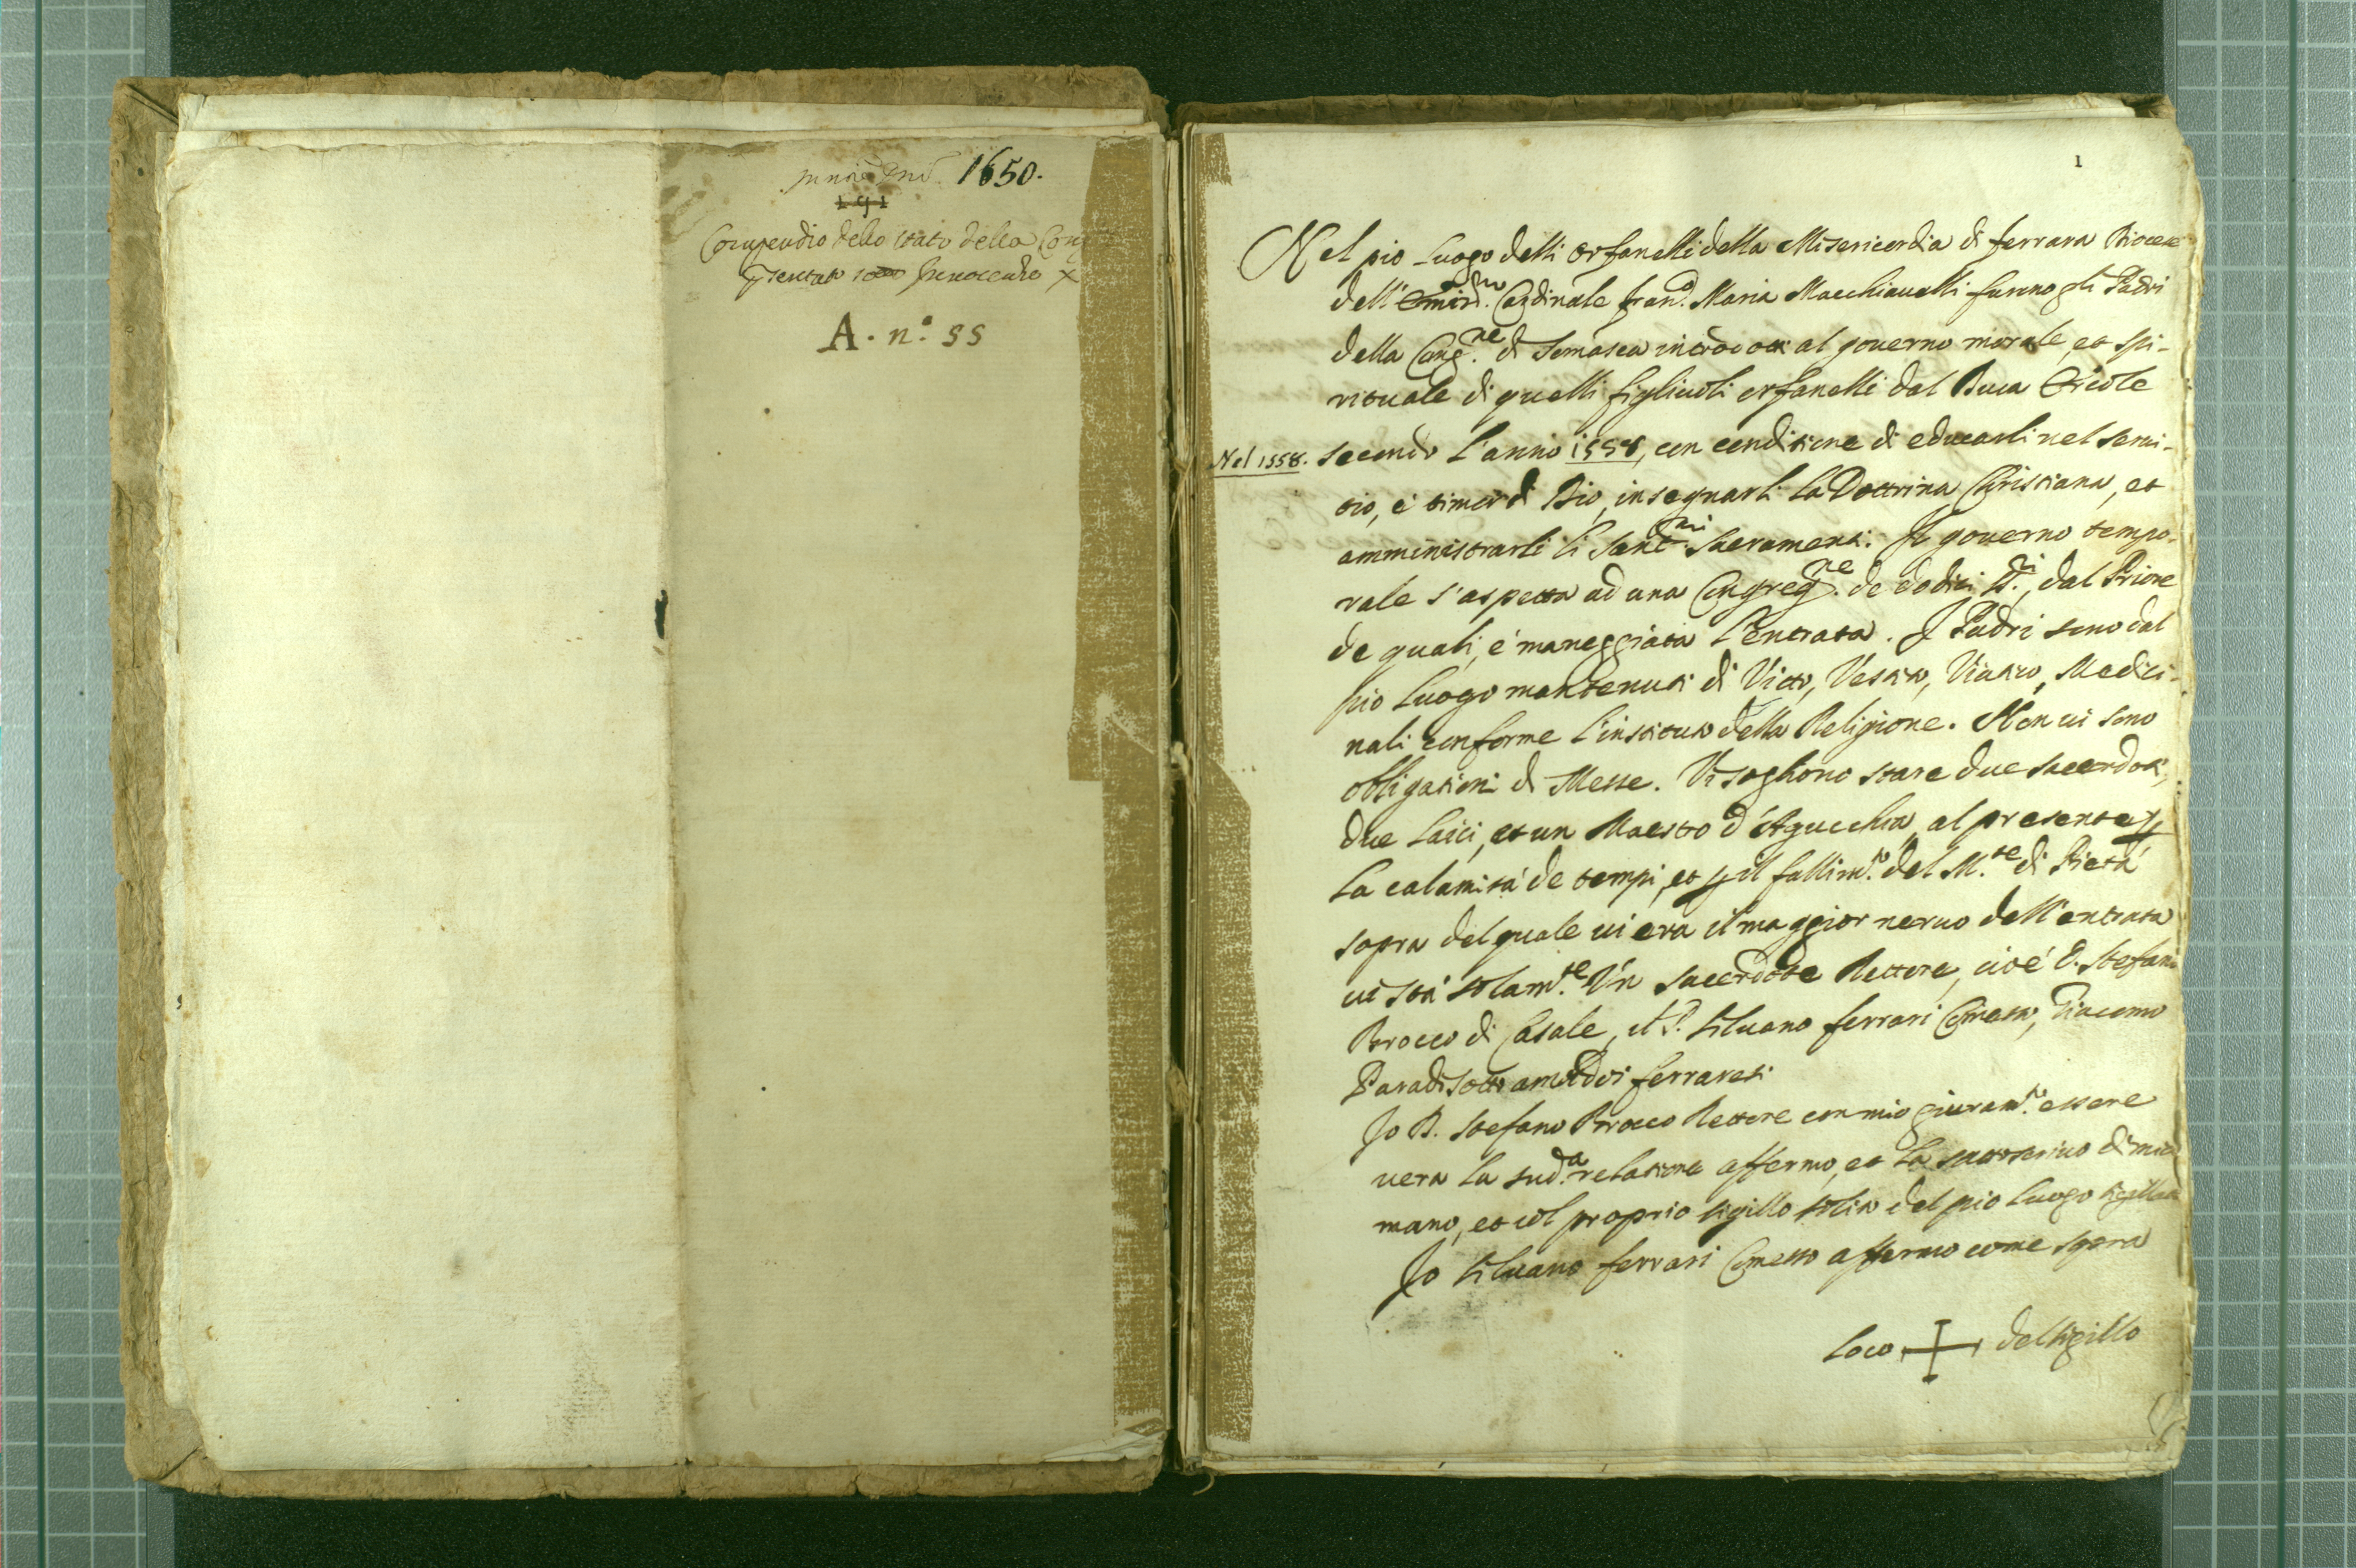 1650.
191
Compendio dello stato della Cong
Innocentio X
A. n.º 55
1
Nel pio Luogo delli Orfanelli della Misericordia di Ferrara Diocese
dell' Cardinale Fran.º Maria Macchiauelli furno gli Padri
della Cong.ne di Somasca introdotti al gouerno morale, et spi-
rituale di quelli figliuoli orfanelli dal Duca Ercole
Nel 1558. secondo l'anno 1558, con conditione di educarli nel serui-
tio, e timor di Dio, insegnarli la Dottrina Christiana, et
amministrarli li Sant.mi Sacramenti. Il gouerno tempo-
rale s'aspetta ad una Congreg.ne de dodici SS.ri, dal Priore
de quali, é maneggiata l'entrata. I Padri sono dal
pio Luogo mantenuti di Vitto, Vestito, Viatico, Medici-
nali conforme l'instituto della Religione. Non ui sono
obligationi di Messe. Vi sogliono stare due sacerdoti,
due Laici, et un Maestro d'Agucchia, al presente p
la calamità de tempi, et p il fallim.to del M.te di Pietà
sopra del quale ui era il maggior neruo dell'entrata
ui stà solam.te Un sacerdote Rettore, cioé D. Stefano
Brocco di Casale, il P. Siluano Ferrari Comasco, Giacomo
Paradisotti amoidoi Ferraresi
Io D. Stefano Brocco Rettore con mio giuram.to essere
uera la sud.a relatione affermo, et la sottoscriuo di mia
mano, et col proprio sigillo solito del pio Luogo sigillata
Io Siluano Ferrari Comasco affermo come sopra
Loco + del sigillo